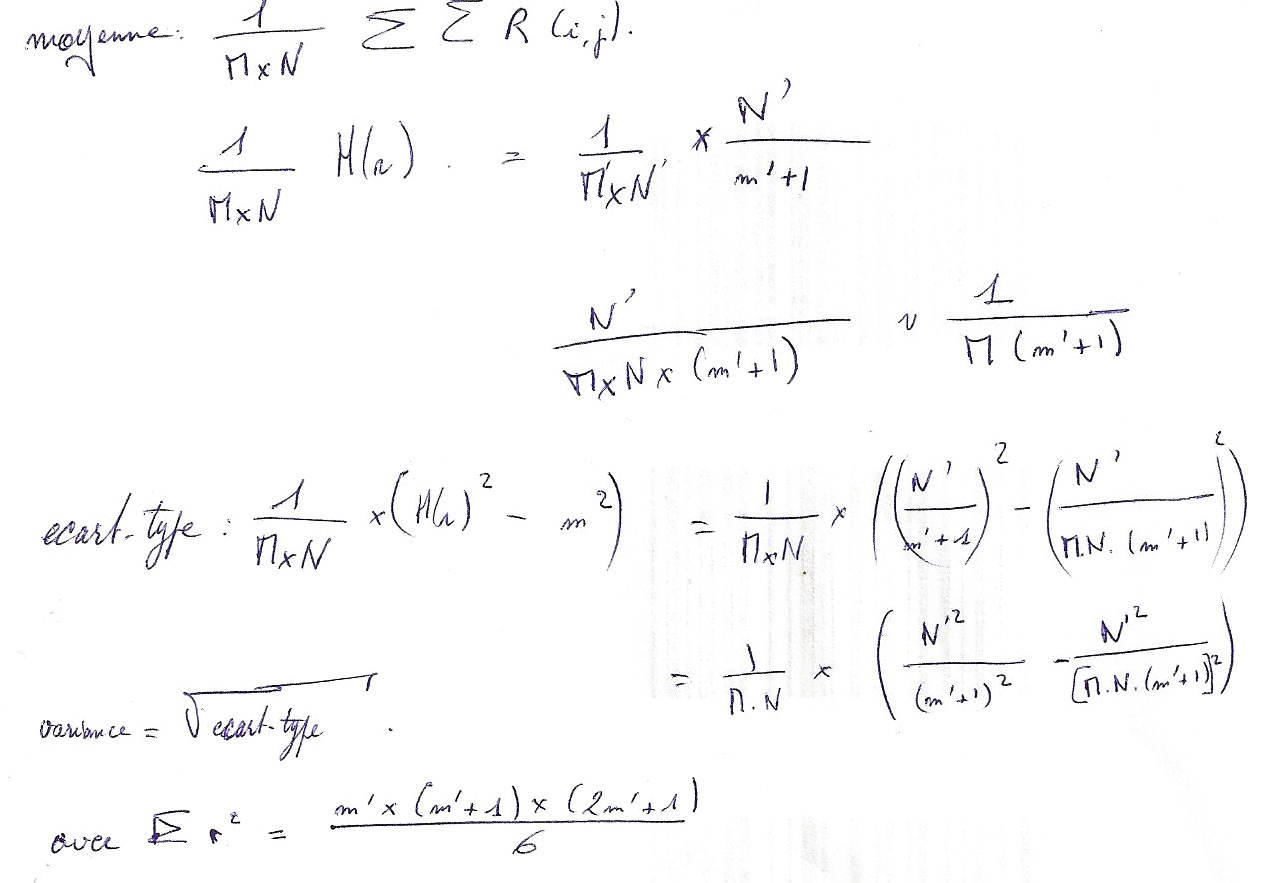 moyenne: 1/(M×N) Σ Σ R(i,j).
1/(M×N) H(r) . = 1/(M'×N') × N'/(m'+1)
N'/(M×N×(m'+1)) ~ 1/(M(m'+1))
ecart-type : 1/(M×N) ×(H(r)² - m²) = 1/(M×N) × ((N'/(m'+1))² - (N'/(M.N.(m'+1)))²)
= 1/(M.N) × (N'²/(m'+1)² - N'²/[M.N.(m'+1)]²)
variance = √ecart-type .
avec Σ r² = m'×(m'+1)×(2m'+1)/6